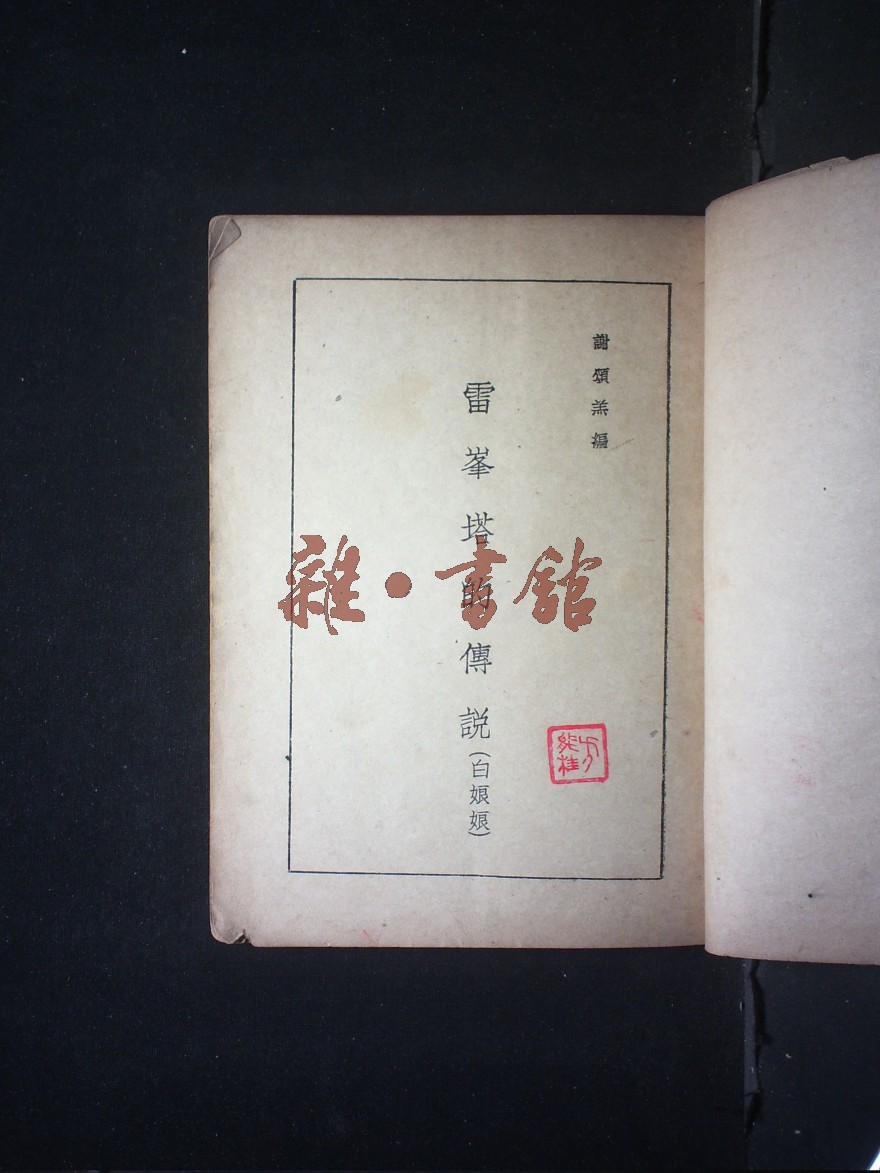 謝頌羔編
雷峯塔的傳説(白娘娘)
雜·書館
方能桂